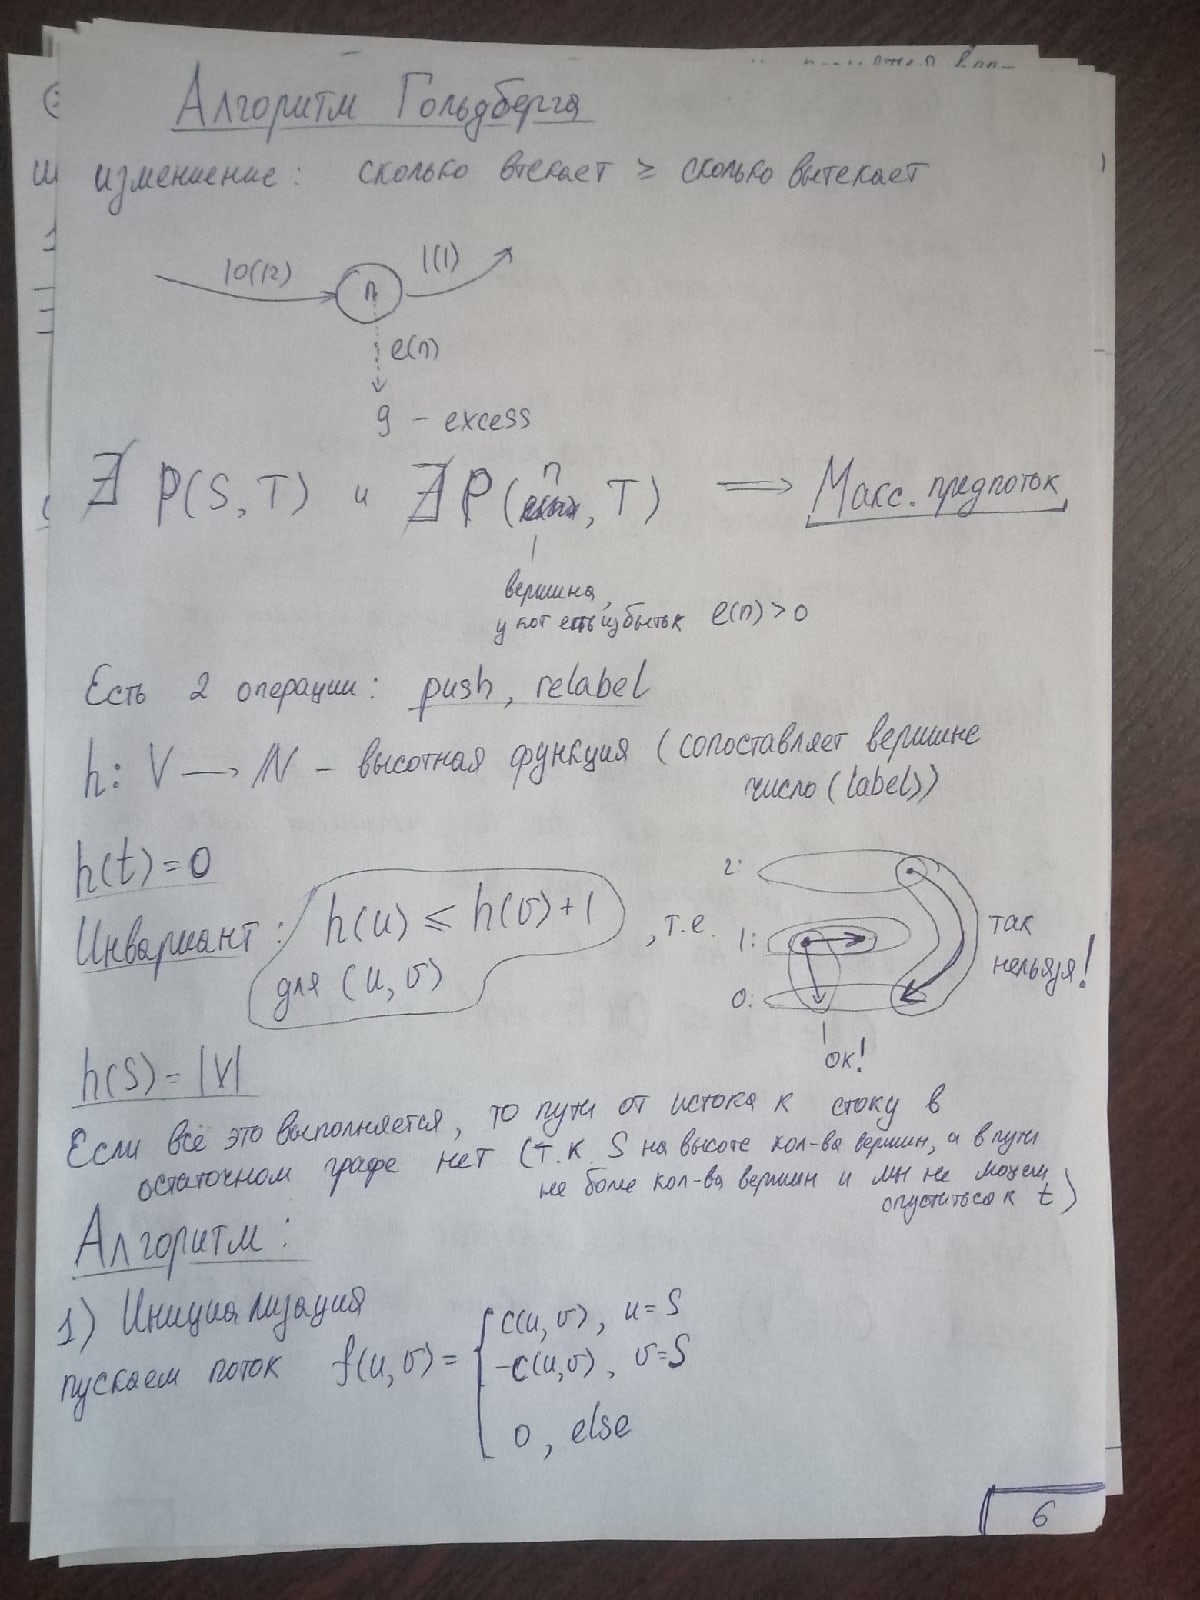 Алгоритм Гольдберга
изменение: сколько втекает ≥ сколько вытекает
10(12) n 1(1)
e(n)
9 - excess
∄ P(S,T) и ∄ P(n, T) ⟹ Макс. предпоток
вершина,
у кот есть избыток e(n)>0
Есть 2 операции: push, relabel
h: V → N - высотная функция (сопоставляет вершине
число (label))
h(t)=0
Инвариант: h(u) ≤ h(v)+1 , т.е.
для (u,v)
2:
1:
0:
так
нельзя!
ок!
h(S)=|V|
Если всё это выполняется, то пути от истока к стоку в
остаточном графе нет (т.к. S на высоте кол-ва вершин, а в пути
не более кол-ва вершин и мы не можем
опуститься к t)
Алгоритм:
1) Инициализация
пускаем поток f(u,v)= { c(u,v), u=S
-c(u,v), v=S
0, else
6